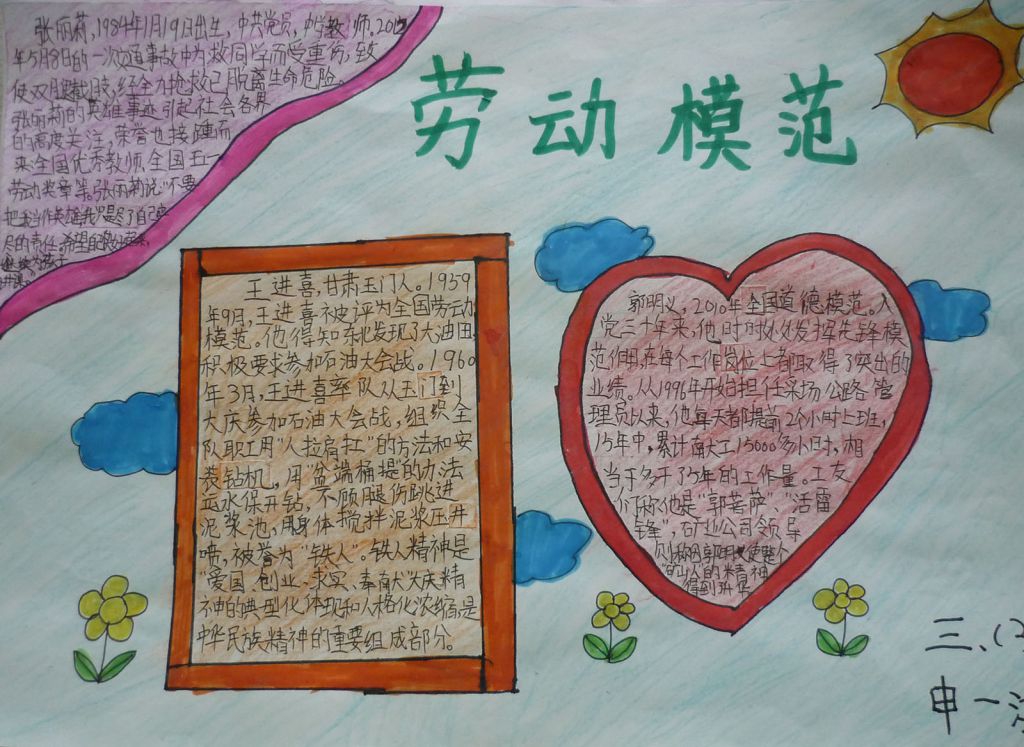 劳动模范
张丽莉,1984年1月19日出生,中共党员,中学教师。2012
年5月8日的一次交通事故中为救同学而受重伤,致
使双腿截肢,经全力抢救已脱离生命危险。
张丽莉的英雄事迹引起社会各界
的高度关注,荣誉也接踵而
来:全国优秀教师,全国五一
劳动奖章等。张丽莉说"不要
把我当作英雄,我只是尽了自己应
尽的责任,希望能
继续为孩子
讲课。
王进喜,甘肃玉门人。1959
年9月,王进喜被评为全国劳动
模范。他得知东北发现了大油田,
积极要求参加石油大会战。1960
年3月,王进喜率队从玉门到
大庆参加石油大会战,组织全
队职工用"人拉肩扛"的方法和安
装钻机,用"盆端桶提"的办法
运水保开钻,不顾腿伤跳进
泥浆池,用身体搅拌泥浆压井
喷,被誉为"铁人"。铁人精神是
"爱国、创业、求实、奉献"大庆精
神的典型化体现和人格化浓缩,是
中华民族精神的重要组成部分。
郭明义,2010年全国道德模范。入
党三十年来,他时时处处发挥先锋模
范作用,在每个工作岗位上都取得了突出的
业绩。从1996年开始担任采场公路管
理员以来,他每天都提前2个小时上班,
15年中,累计献工15000多小时,相
当于多干了5年的工作量。工友
们称他是"郭菩萨"、"活雷
锋",矿业公司领导
则称因郭明义使整个
的人的精神
得到升华
三、(2
申一